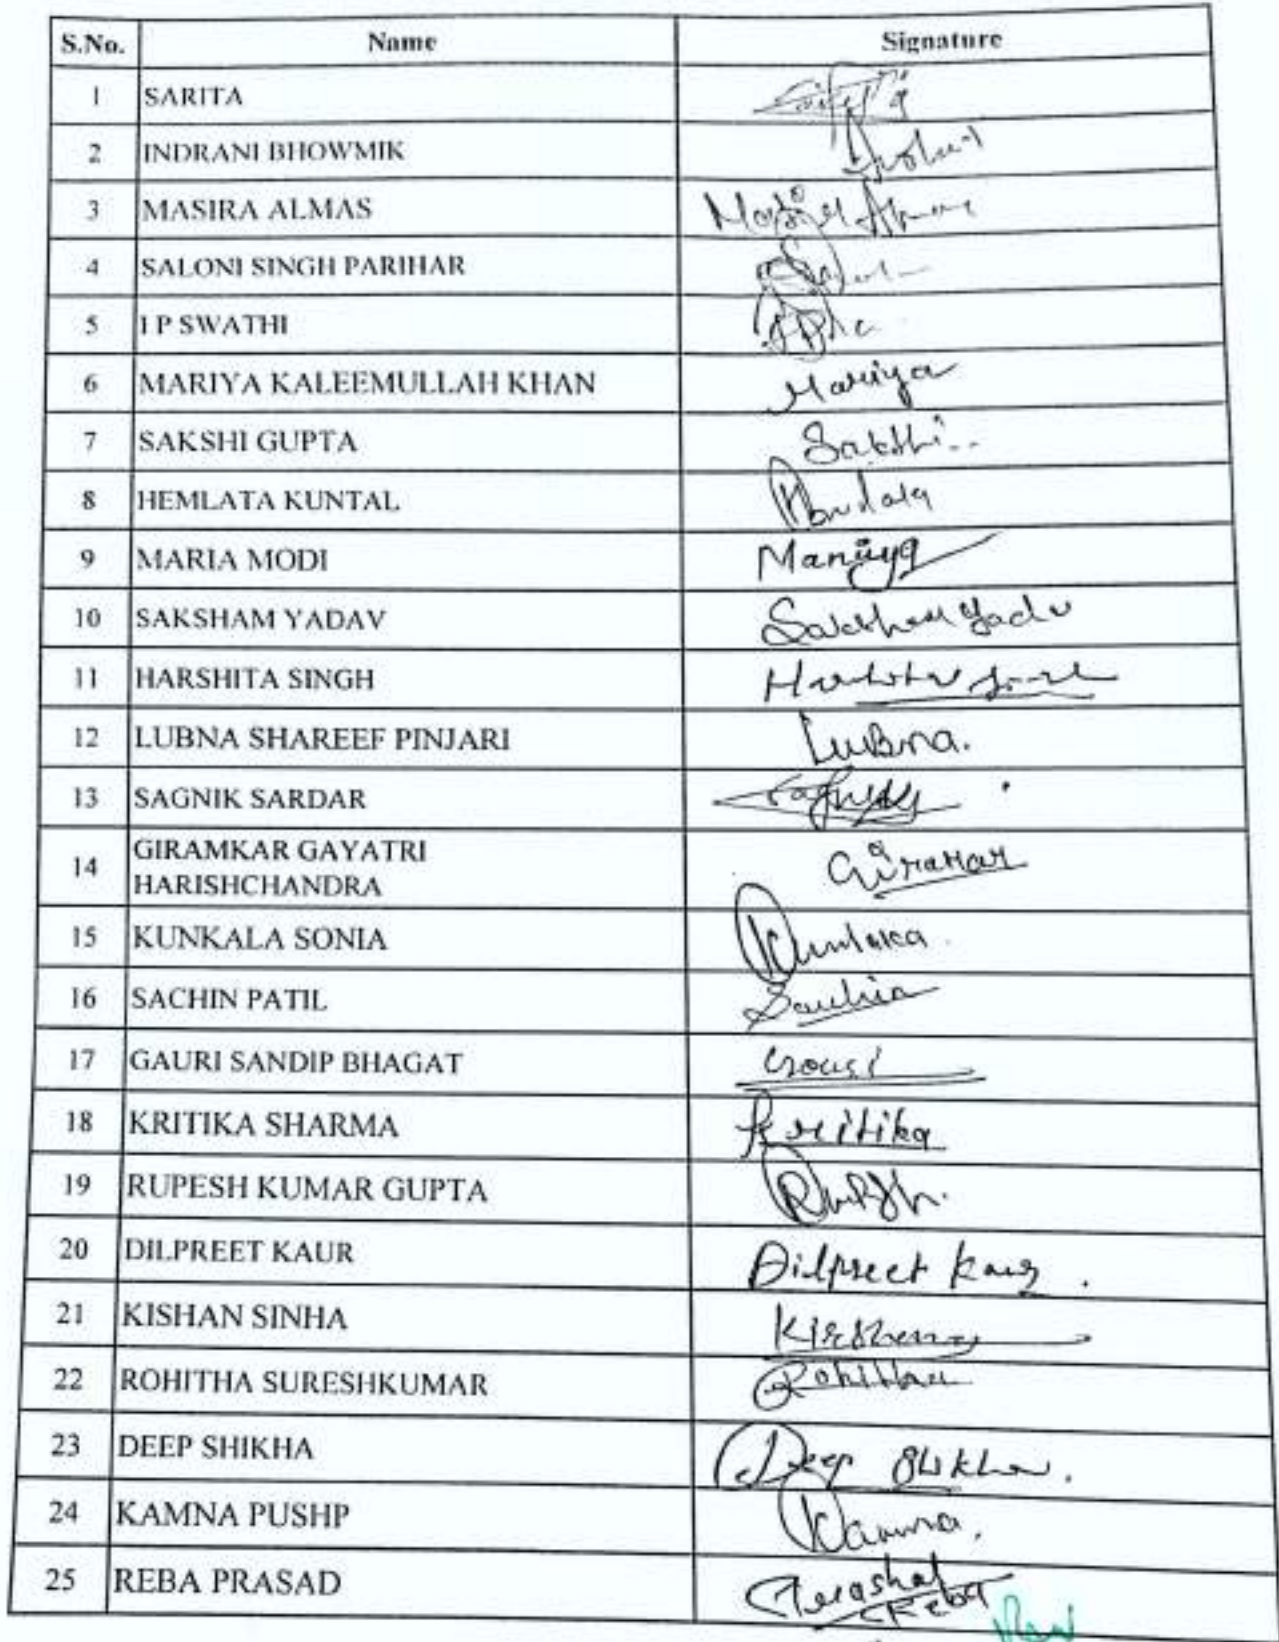 S.No. Name Signature
1 SARITA
2 INDRANI BHOWMIK
3 MASIRA ALMAS
4 SALONI SINGH PARIHAR
5 I P SWATHI
6 MARIYA KALEEMULLAH KHAN Mariya
7 SAKSHI GUPTA Sakshi
8 HEMLATA KUNTAL
9 MARIA MODI Mariya
10 SAKSHAM YADAV
11 HARSHITA SINGH
12 LUBNA SHAREEF PINJARI LuBna.
13 SAGNIK SARDAR
14 GIRAMKAR GAYATRI
HARISHCHANDRA
15 KUNKALA SONIA
16 SACHIN PATIL Sachin
17 GAURI SANDIP BHAGAT Gauri
18 KRITIKA SHARMA Kritika
19 RUPESH KUMAR GUPTA
20 DILPREET KAUR Dilpreet Kaur .
21 KISHAN SINHA
22 ROHITHA SURESHKUMAR Rohitha
23 DEEP SHIKHA Deep Shikha.
24 KAMNA PUSHP Kamna.
25 REBA PRASAD
Reba